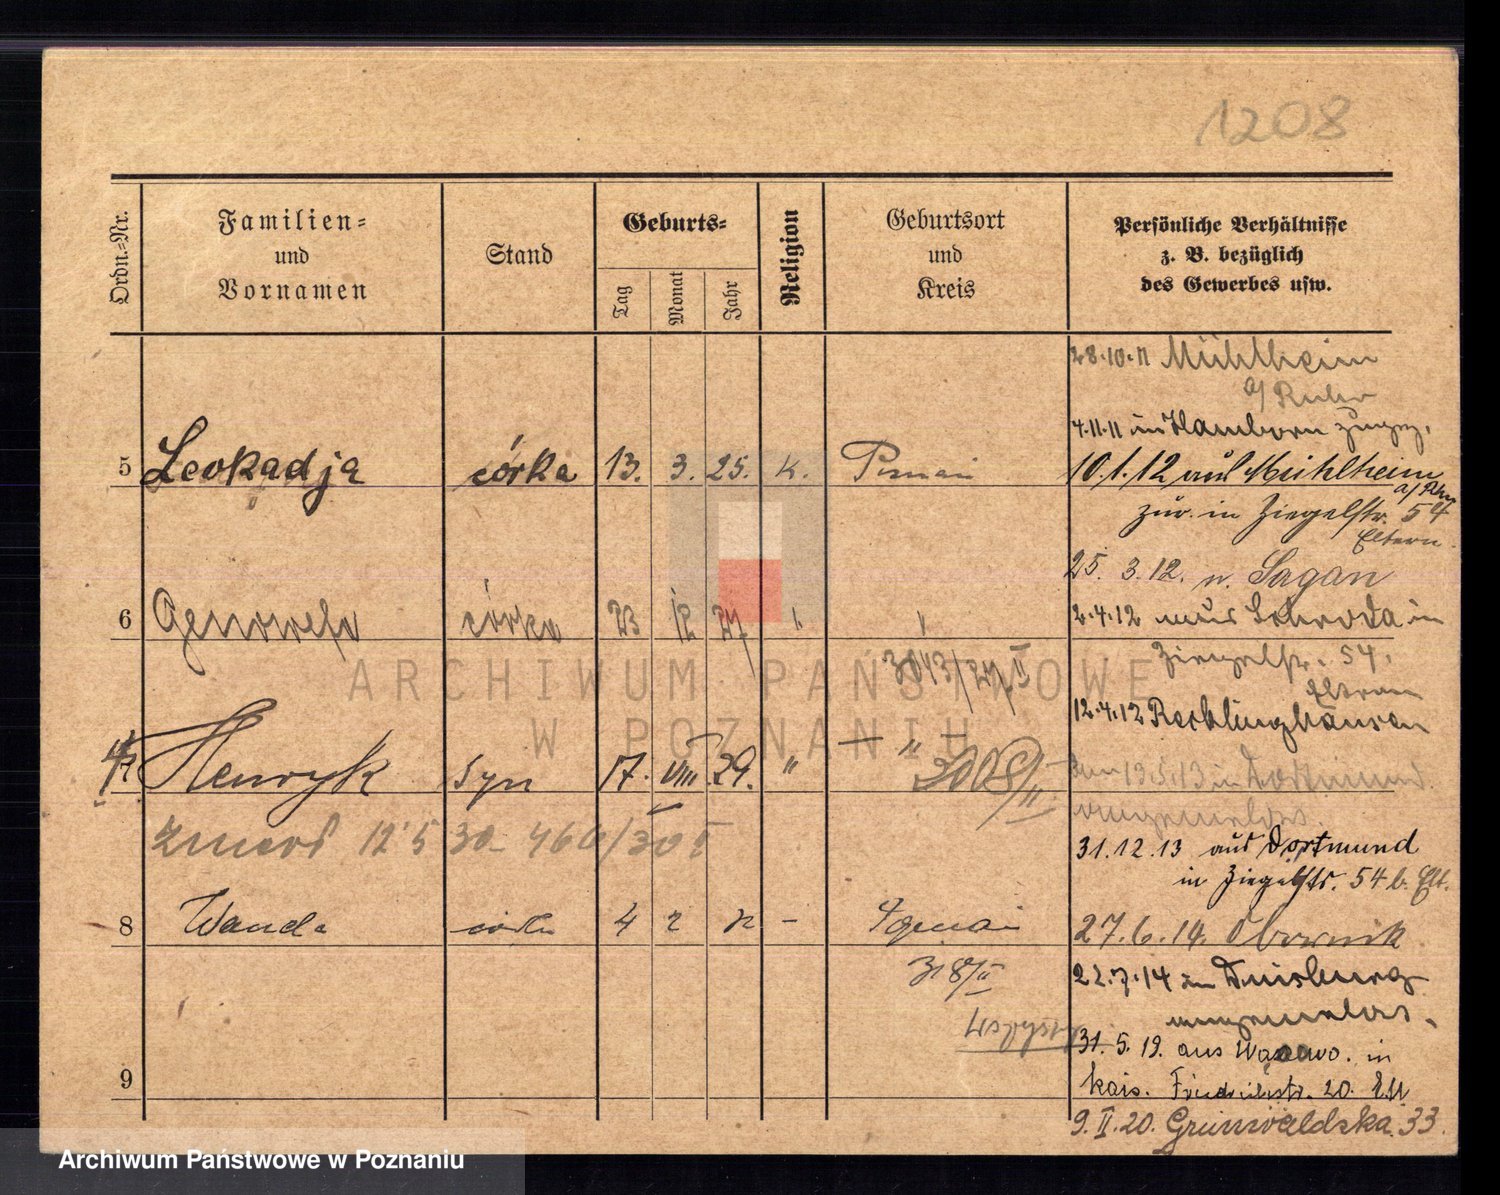 1208
Ordn.=Nr.
Familien=
und
Vornamen
Stand
Geburts=
Tag
Monat
Jahr
Religion
Geburtsort
und
Kreis
Persönliche Verhältnisse
z. B. bezüglich
des Gewerbes usw.
5 Leokadja córka 13. 3. 25. K. Poznań
6 Genowefa córka 23 12 27 "
3043/27 II
7 Henryk syn 17. VIII 29. " — " —
3008/II
zmarł 12 5 30 460/30 I
8 Wanda córka 4 2 - Poznań
318/II
9
28.10.11 Mühlheim
a/ Ruhr
4.11.11 in Hamborn zugez.
10.1.12 aus Mühlheim
a/Rhr
zur. in Ziegelstr. 54
Eltern.
25. 3.12. n. Sagan
2.4.12 aus Schroda in
Ziegelstr. 54,
Eltern
12.4.12 Recklinghausen
13.5.13 in Dortmund
angemeldet.
31.12.13 aus Dortmund
in Ziegelstr. 54 b. Elt.
27.6.14. Obornik
22.7.14 in Duisburg
angemeldet.
31. 5. 19. aus Wąsowo. in
Kais. Friedrichstr. 20. Elt.
9.II.20. Grunwaldzka 33.
ARCHIWUM PAŃSTWOWE
W POZNANIU
Archiwum Państwowe w Poznaniu